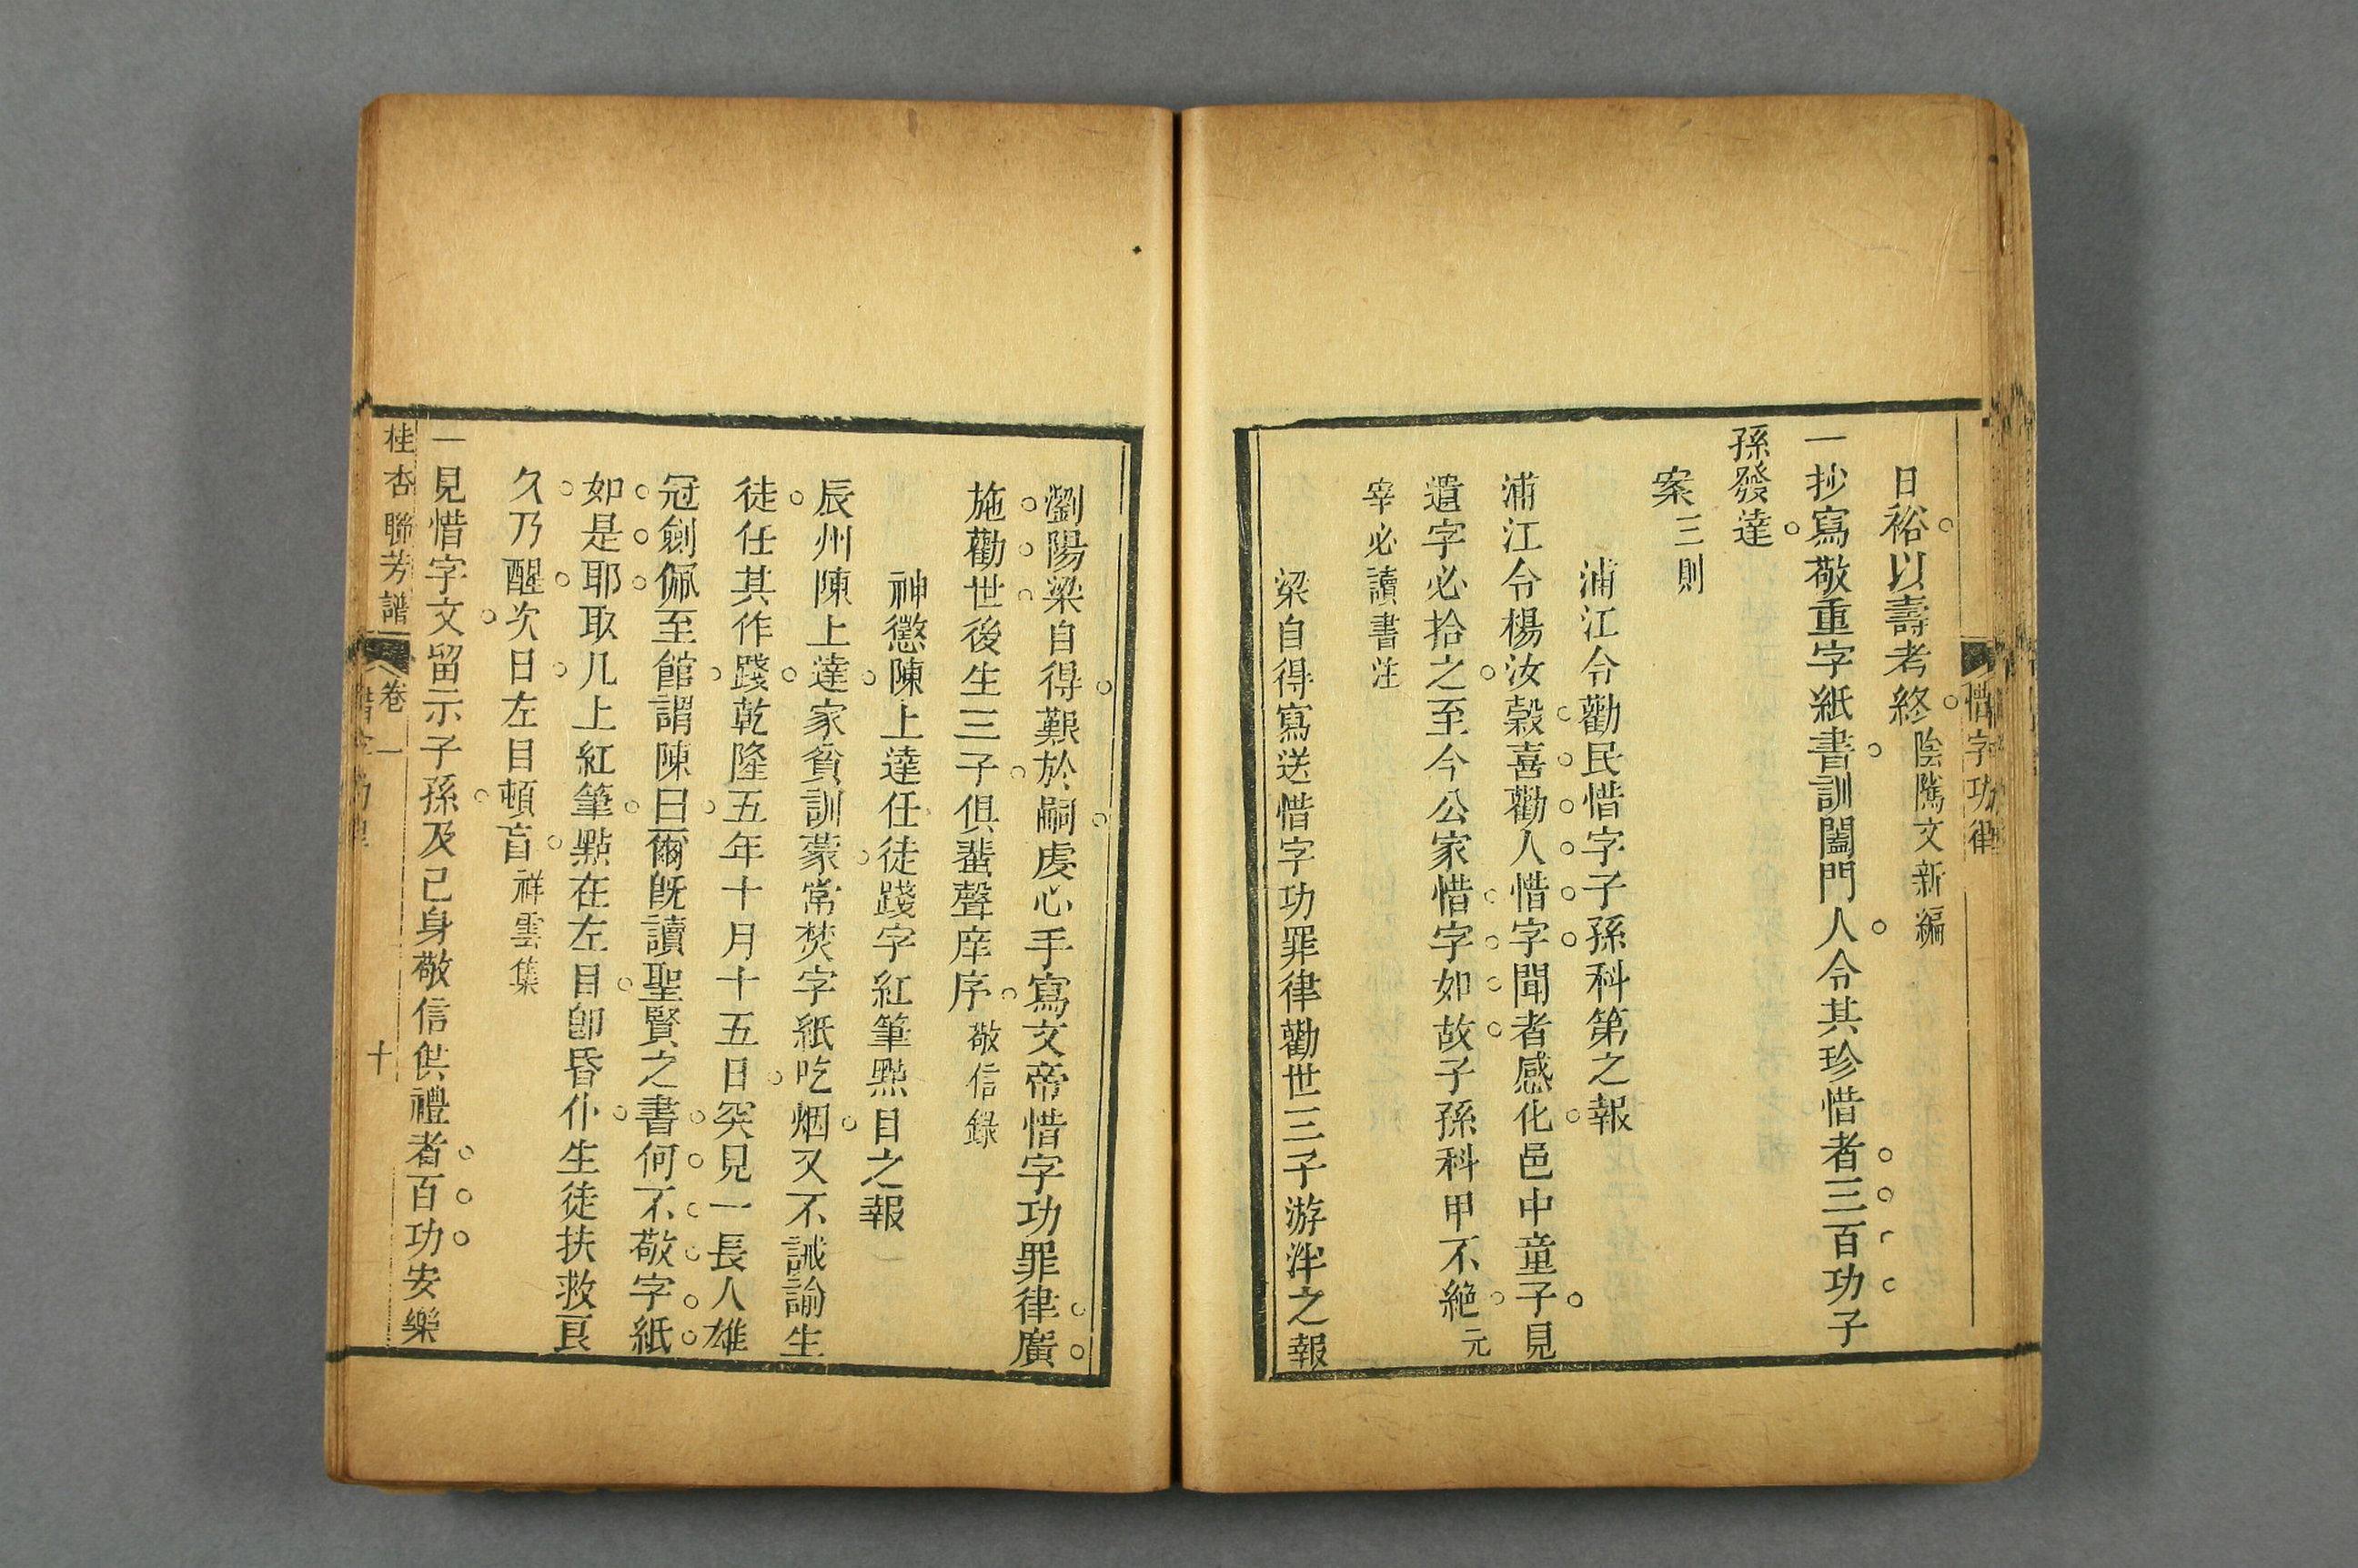 惜字功律
日裕以壽考終陰隲文新編
一抄寫敬重字紙書訓闔門人令其珍惜者三百功子
孫發達
案三則
浦江令勸民惜字子孫科第之報
浦江令楊汝穀喜勸人惜字聞者感化邑中童子見
遺字必拾之至今公家惜字如故子孫科甲不絶元
宰必讀書注
梁自得寫送惜字功罪律勸世三子游泮之報
瀏陽梁自得艱於嗣虔心手寫文帝惜字功罪律廣
施勸世後生三子俱蜚聲庠序敬信録
神懲陳上達任徒踐字紅筆㸃目之報
辰州陳上達家貧訓蒙常焚字紙吃烟又不誡諭生
徒任其作踐乾隆五年十月十五日突見一長人雄
冠劍佩至館謂陳曰爾旣讀聖賢之書何不敬字紙
如是耶取几上紅筆㸃在左目卽昏仆生徒扶救良
久乃醒次日左目頓盲祥雲集
一見惜字文留示子孫及己身敬信供禮者百功安樂
桂杏聯芳譜 卷一 十